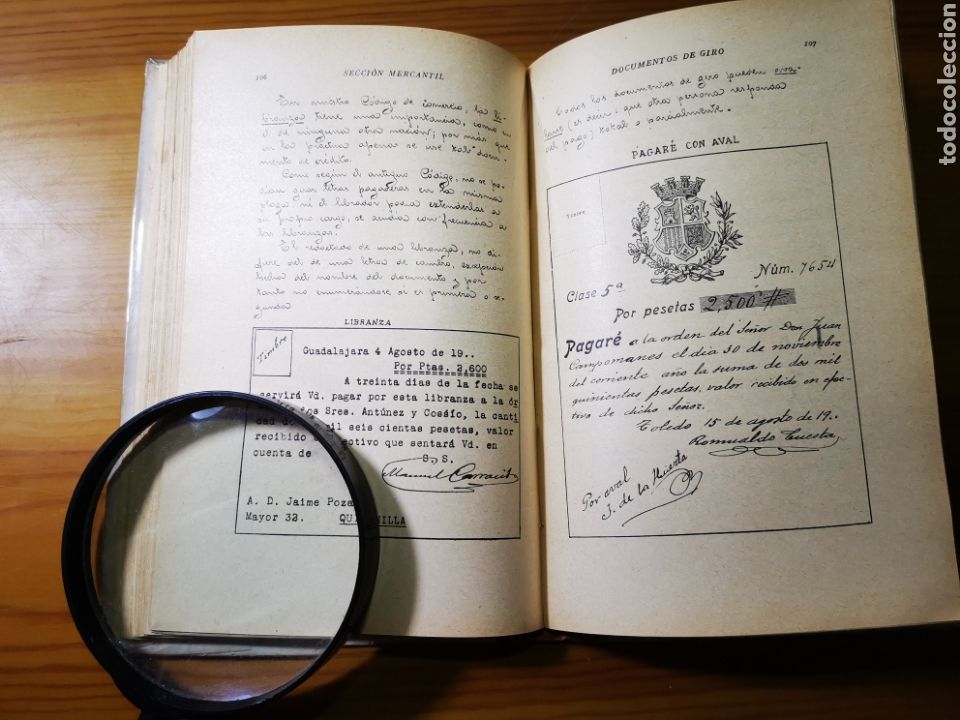 106 SECCIÓN MERCANTIL
En nuestro Código de comercio, la li-
branza tiene una importancia, como en
el de ninguna otra nación, por más que
en la práctica apenas se use tal docu-
mento de crédito.
Como según el antiguo Código, no se po-
dían girar letras pagaderas en la misma
plaza ni el librador podía extenderlas a
su propio cargo, se acudía con frecuencia a
las libranzas.
El redactado de una libranza, no di-
fiere del de una letra de cambio, excepción
hecha del nombre del documento y por
tanto no enumerándose si es primera o se-
gunda
LIBRANZA
Timbre
Guadalajara 4 Agosto de 19..
Por Ptas. 2,600
A treinta días de la fecha se
servirá Vd. pagar por esta libranza a la ór
los Sres. Antúnez y Cosáfo, la canti
dad do mil seis cientas pesetas, valor
recibido ectivo que sentará Vd. en
cuenta de
S. S.
Manuel Carracit
A. D. Jaime Poza
Mayor 32. QUI NILLA
DOCUMENTOS DE GIRO 107
Todos los documentos de giro pueden ava-
larse (es decir, que otra persona responda
del pago) total o parcialmente.
PAGARÉ CON AVAL
Timbre
Clase 5ª Núm. 7654
Por pesetas 2,500 #
Pagaré a la orden del Señor Don Juan
Campomanes el día 30 de noviembre
del corriente año la suma de dos mil
quinientas pesetas, valor recibido en efec-
tivo de dicho Señor.
Toledo 15 de agosto de 19..
Romualdo Cuesta
Por aval
J. de la Huerta
todocoleccion